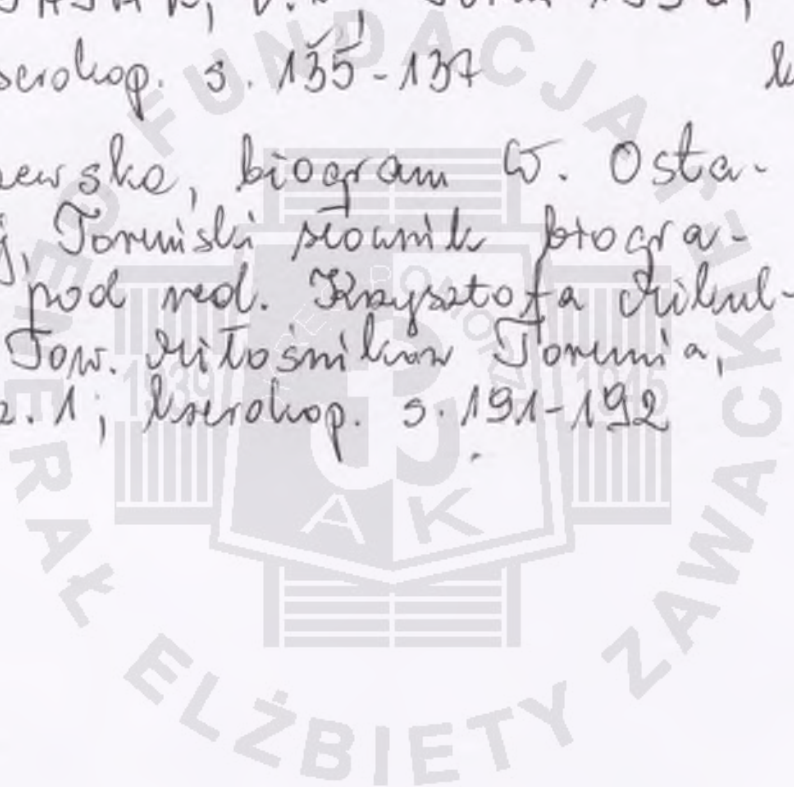 kserokop. s. 135-137
ewska, biogram W. Osta-
j, Toruński słownik biogra-
pod red. Krzysztofa Mikul-
Tow. Miłośników Torunia,
z. 1; kserokop. s. 191-192
FUNDACJA
GENERAŁ ELŻBIETY ZAWACKIEJ
ARMII POMORZE
1939 1945
AK